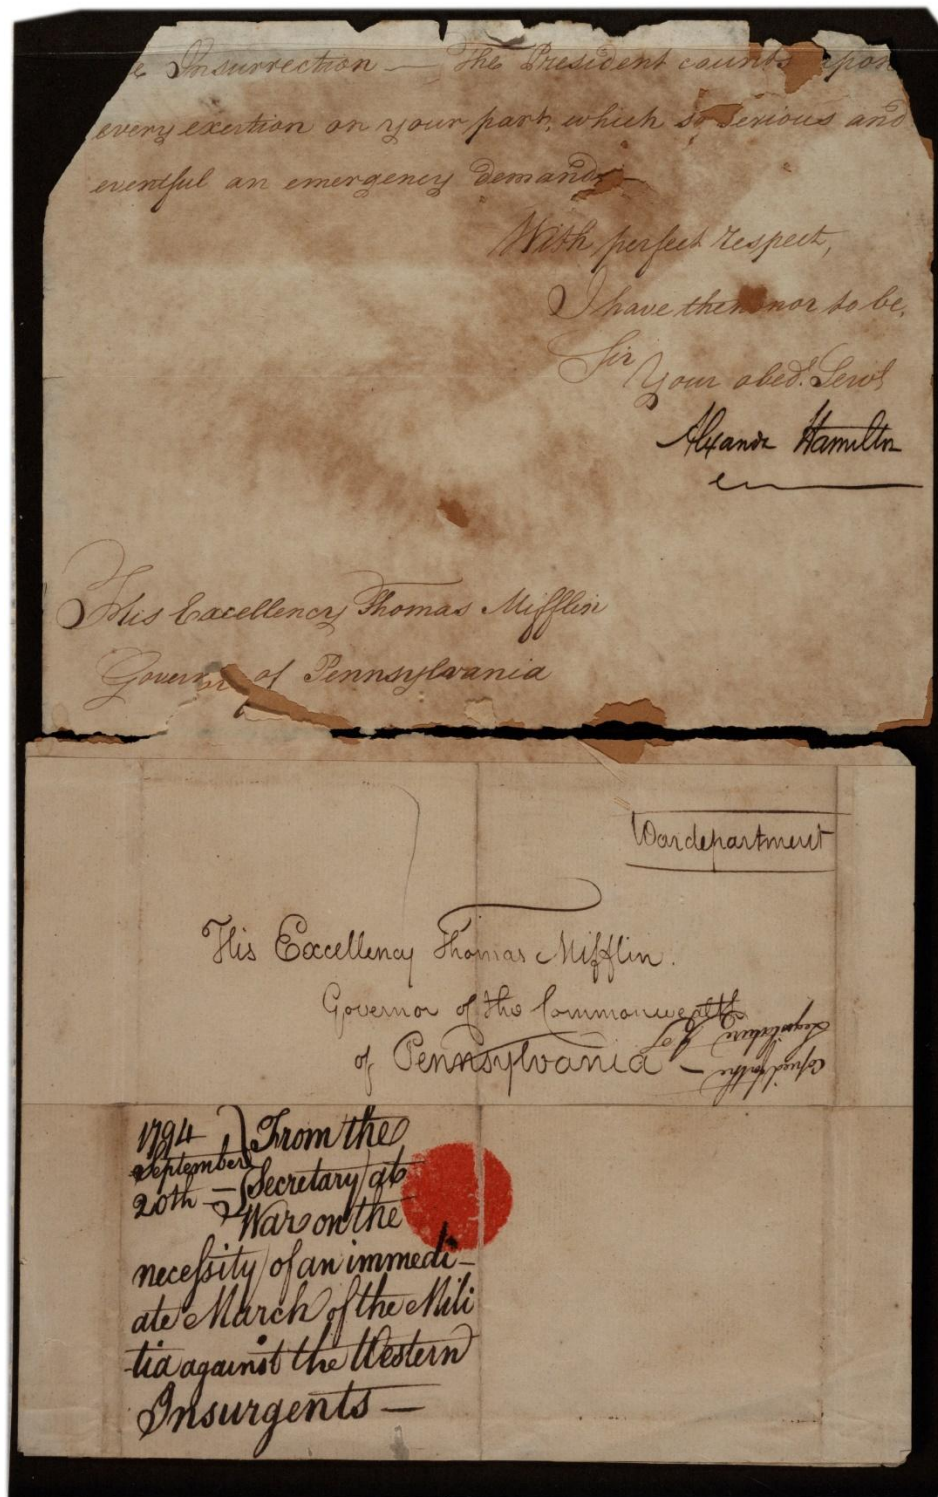 e Insurrection — The President counts upon
every exertion on your part, which so serious and
eventful an emergency demands —
With perfect respect,
I have the honor to be,
Sir
Your obed. Servt
Alexandr Hamilton
His Excellency Thomas Mifflin
Governor of Pennsylvania
War department
His Excellency Thomas Mifflin.
Governor of the Commonwealth
of Pennsylvania —
Copied for the
Legislature
1794
September
20th —
From the
Secretary at
War on the
necessity of an immedi-
ate March of the Mili
tia against the Western
Insurgents —